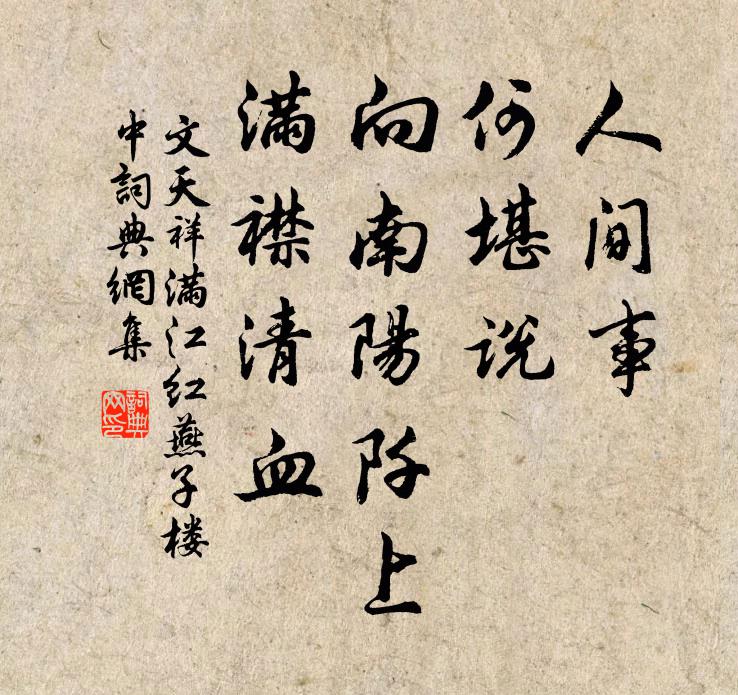 人間事
何堪説
向南陽阡上
滿襟清血
文天祥滿江红燕子楼
中詞典網集
詞典网印